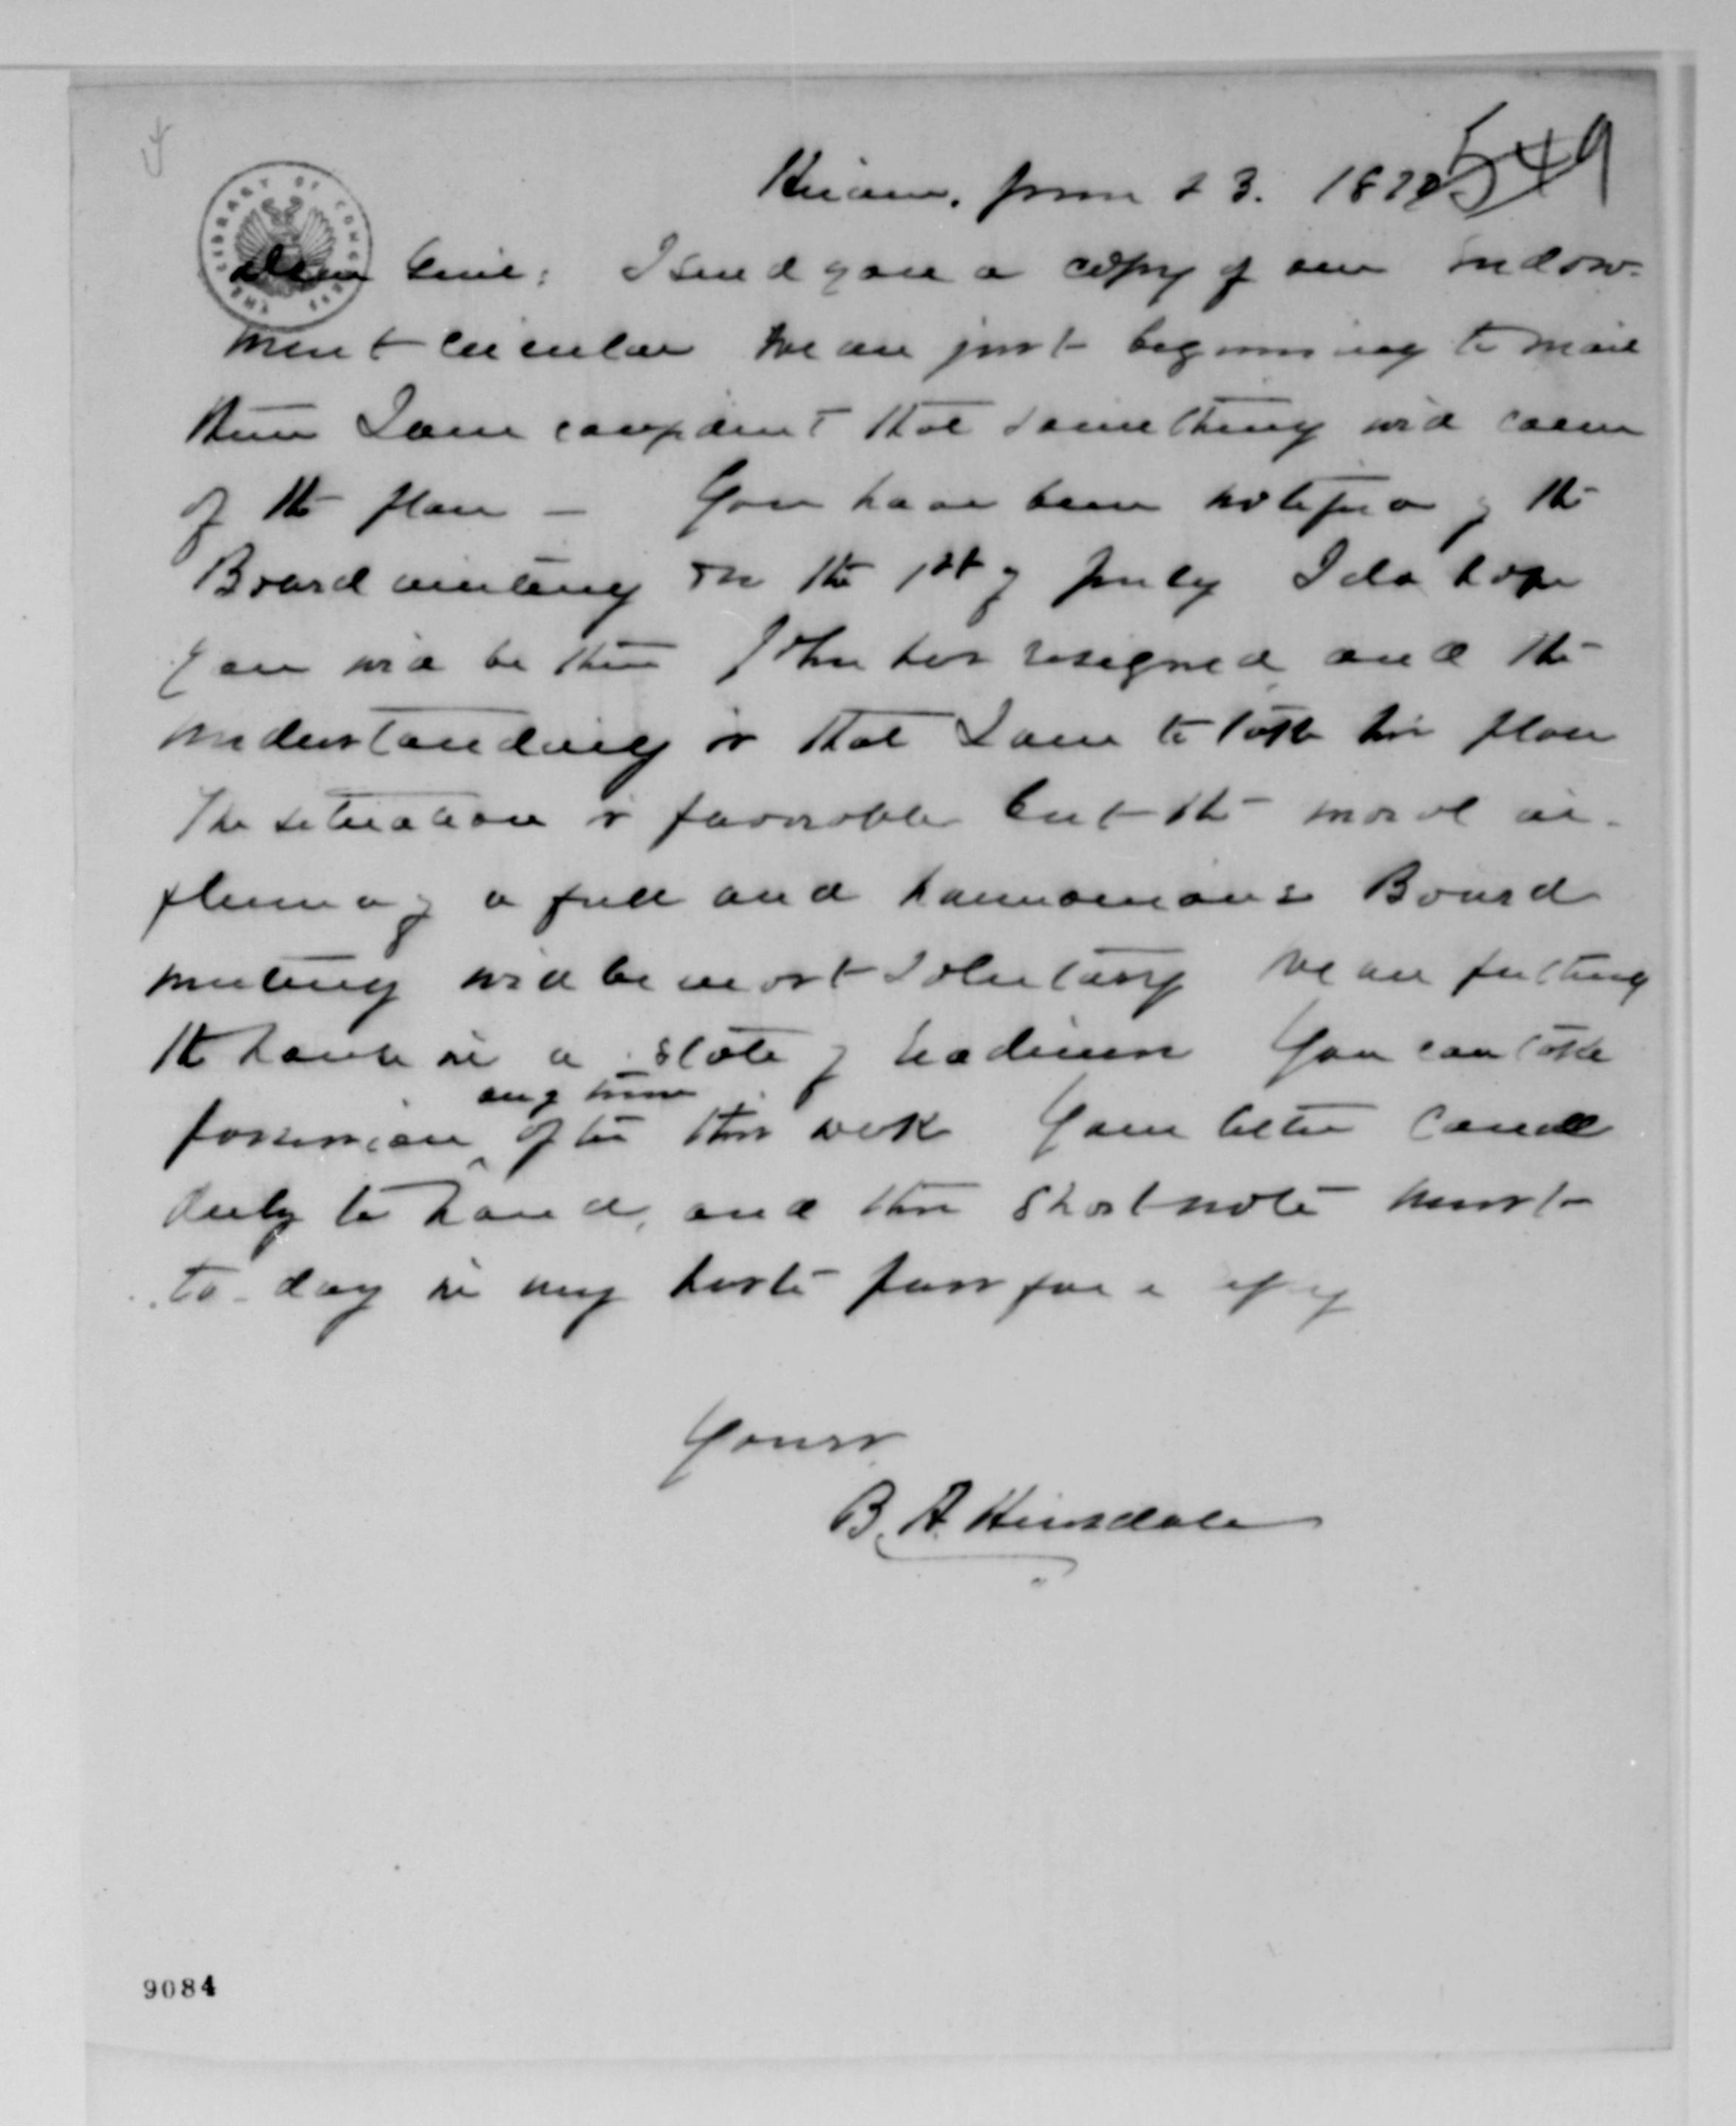 549
Hiram, June 23. 1870
THE LIBRARY OF CONGRESS
Dear Genl: I send you a copy of our endow-
ment circular We are just beginning to mail
them I am confident that something will come
of the plan — You have been notified of the
Board meeting on the 1st of July I do hope
you will be there John has resigned and the
understanding is that I am to take his place
The situation is favorable but the moral in-
fluence of a full and harmonious Board
meeting will be most salutary We are putting
the house in a state of readiness You can take
any time
possession after this week Your letter came
duly to hand, and this short note must
to-day in my haste pass for a
Yours
B. A. Hinsdale
9084